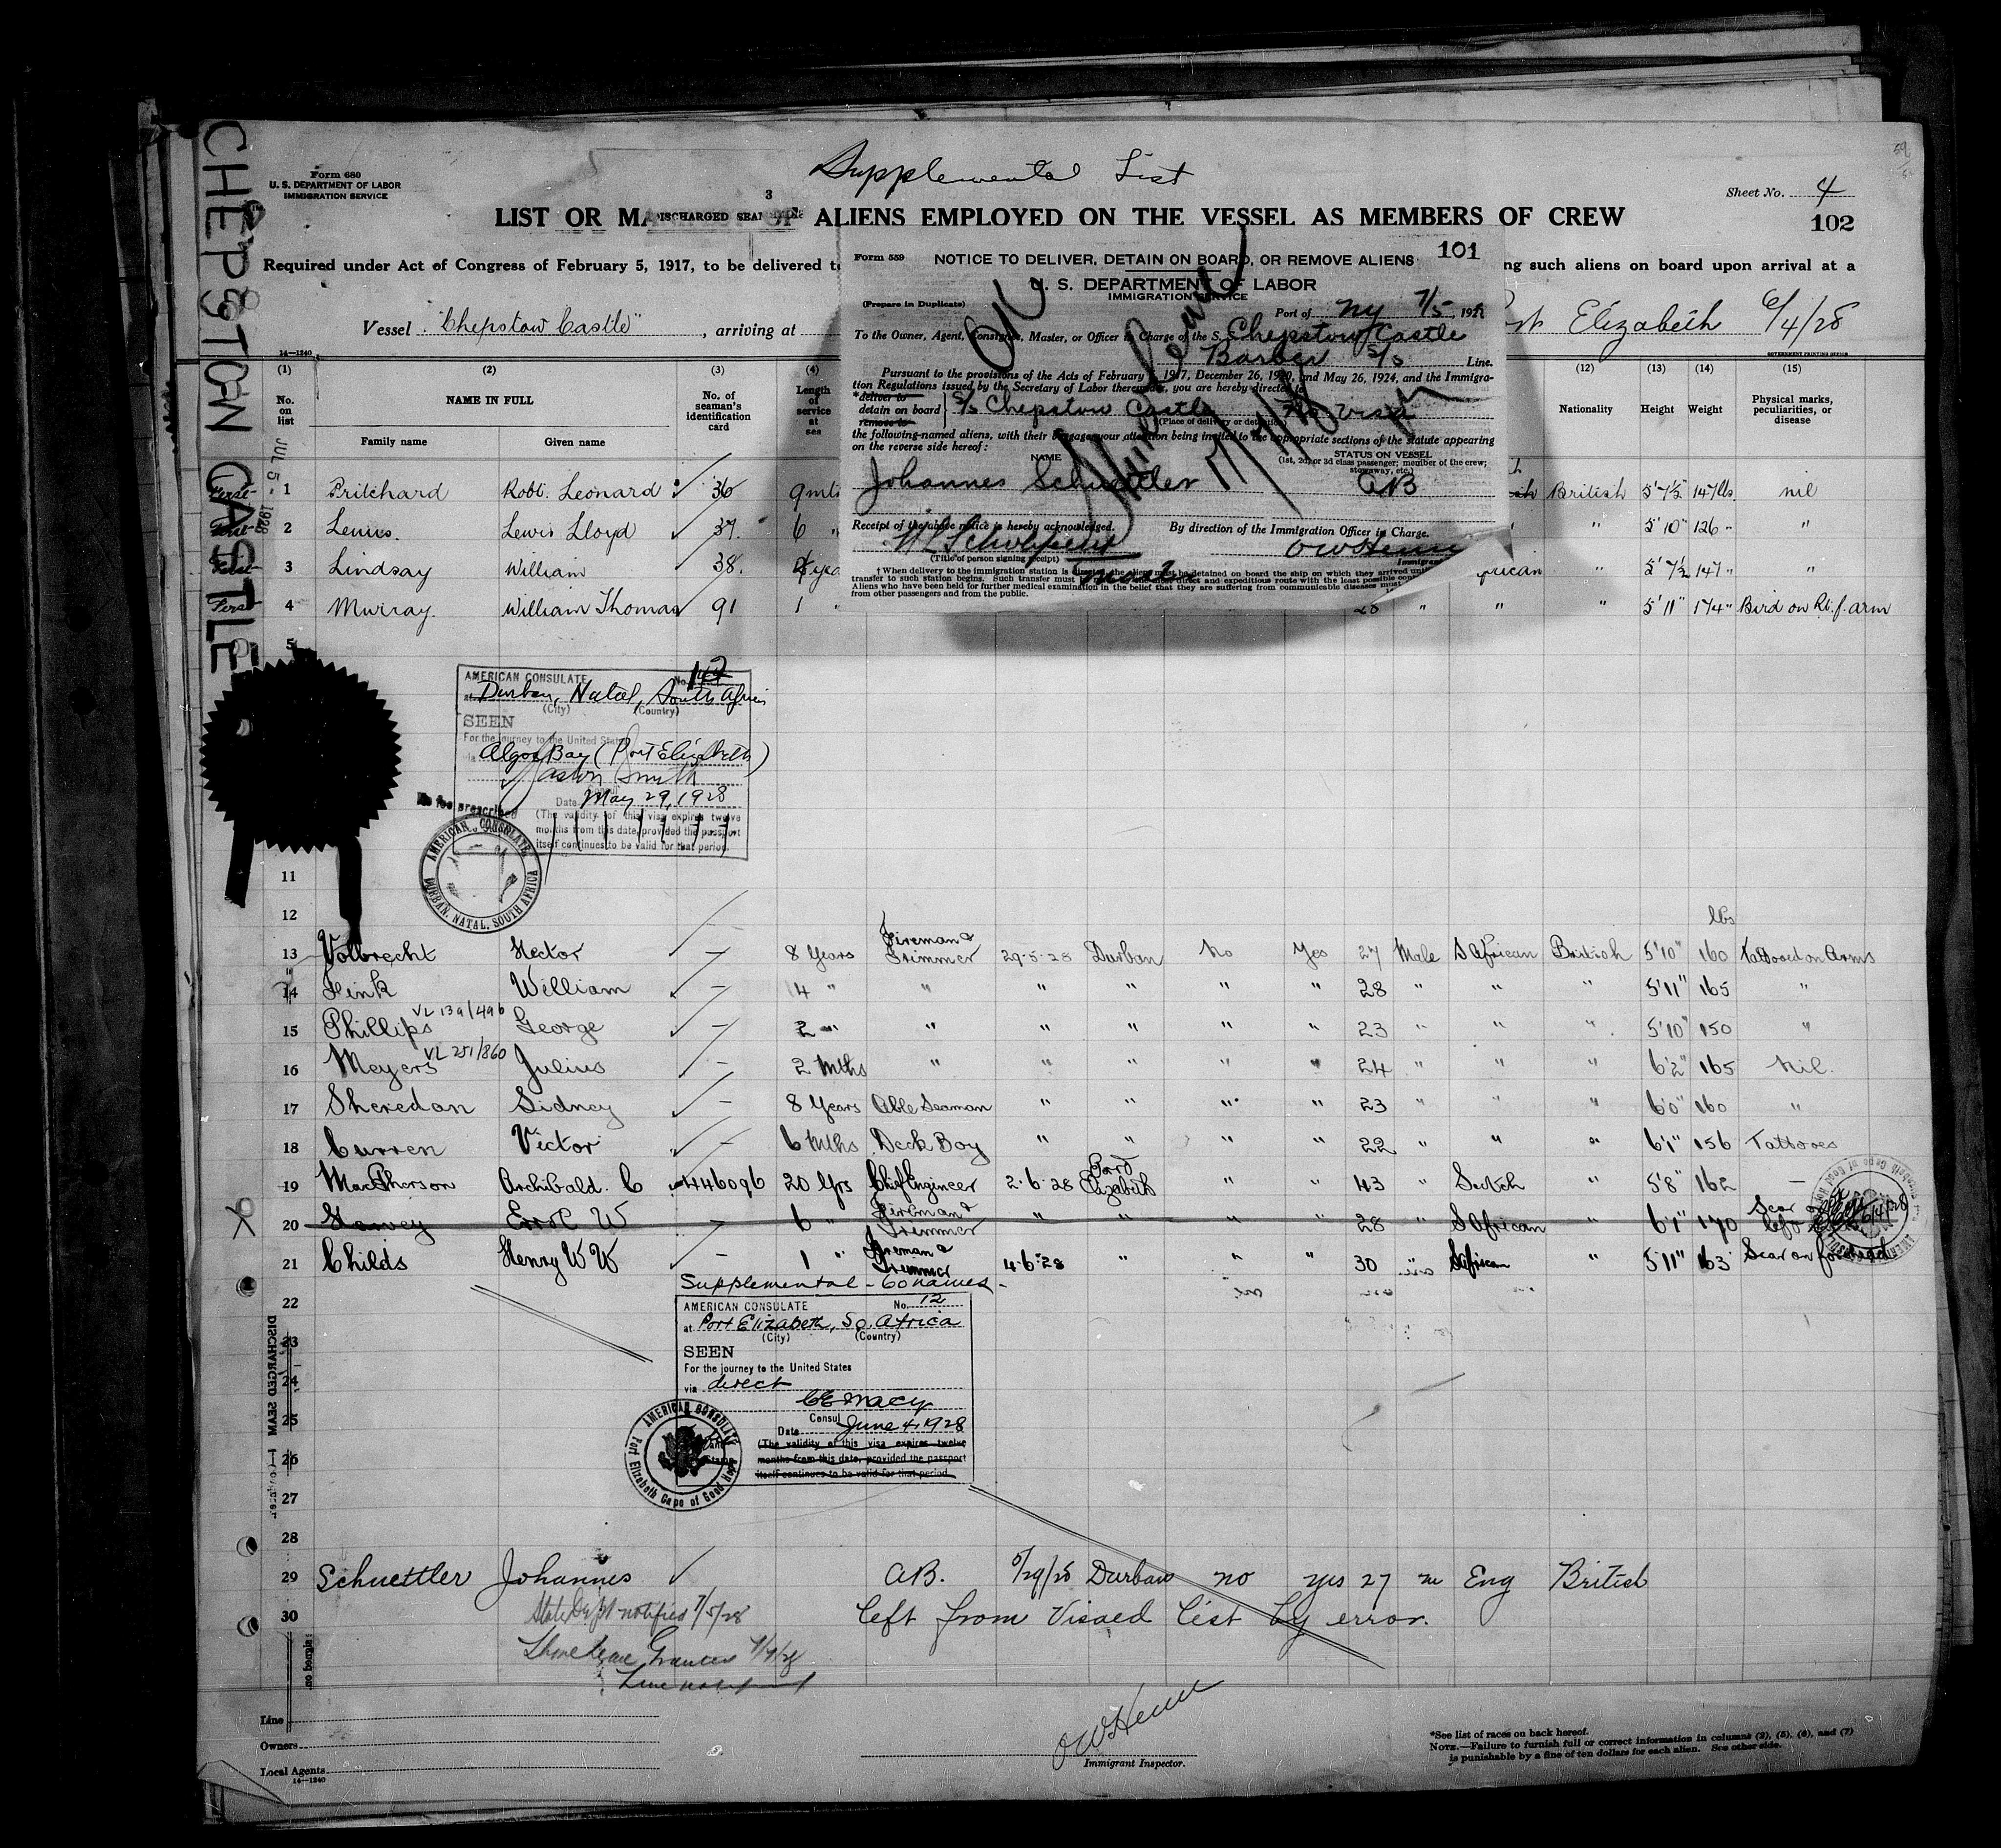 CHEPSTOW CASTLE
JUL 5 - 1928
Supplemental List
Form 680
U. S. DEPARTMENT OF LABOR
IMMIGRATION SERVICE
3
Sheet No. 4
LIST OR MA DISCHARGED SEAM ALIENS EMPLOYED ON THE VESSEL AS MEMBERS OF CREW
102
Required under Act of Congress of February 5, 1917, to be delivered t
ng such aliens on board upon arrival at a
Vessel "Chepstow Castle", arriving at
Elizabeth 6/4/28
14—1240
GOVERNMENT PRINTING OFFICE
Form 559
NOTICE TO DELIVER, DETAIN ON BOARD, OR REMOVE ALIENS
101
U. S. DEPARTMENT OF LABOR
IMMIGRATION SERVICE
(Prepare in Duplicate)
Port of NY 7/5, 1928
To the Owner, Agent, Consignee, Master, or Officer in Charge of the S. S. Chepstow Castle
Barber S/S Line.
Pursuant to the provisions of the Acts of February 5, 1917, December 26, 1920, and May 26, 1924, and the Immigra-
tion Regulations issued by the Secretary of Labor thereunder, you are hereby directed to
*deliver to
detain on board S/S Chepstow Castle No visa
remove to
(Place of delivery or detention)
the following-named aliens, with their baggage, your attention being invited to the appropriate sections of the statute appearing
on the reverse side hereof:
NAME
STATUS ON VESSEL
(1st, 2d, or 3d class passenger; member of the crew;
stowaway, etc.)
Johannes Schuettler AB
Receipt of the above notice is hereby acknowledged.
By direction of the Immigration Officer in Charge.
OWHenry
(Title of person signing receipt)
† When delivery to the immigration station is
must be detained on board the ship on which they arrived
transfer to such station begins. Such transfer must
direct and expeditious route with the least possible
Aliens who have been held for further medical examination in the belief that they are suffering from communicable diseases must
from other passengers and from the public.
(1) (2) (3) (4) (12) (13) (14) (15)
No. on list
NAME IN FULL
Family name Given name
No. of seaman's identification card
Length of service at sea
Nationality Height Weight
Physical marks, peculiarities, or disease
1 Pritchard Robt. Leonard 36 9 mt British 5'7½" 147 lbs. nil
2 Lewis. Lewis Lloyd 37. 6 " " 5'10" 126 " "
3 Lindsay William 38. " 5'7½ 147 " "
4 Murray. William Thomas 91 1 " 28 " " " 5'11" 174 " Bird on Rt. f. arm
5
AMERICAN CONSULATE No. 142
at Durban, Natal, South Africa
(City) (Country)
SEEN
For the journey to the United States
via Algoa Bay (Port Elizabeth)
Date May 29, 1928
No fee prescribed
(The validity of this visa expires twelve
months from this date, provided the passport
itself continues to be valid for that period.
AMERICAN CONSULATE
DURBAN, NATAL, SOUTH AFRICA
11
12
lbs
13 Volbrecht Hector – 8 Years Fireman & Trimmer 29·5·28 Durban No Yes 27 Male S African British 5'10" 160 Tattooed on Arms
14 Fink William – 4 " " " " " " 28 " " " 5'11" 165 "
VL 139/496
15 Phillips George – 2 " " " " " " 23 " " " 5'10" 150 "
VL 251/860
16 Meyers Julius – 2 Mths " " " " " 24 " " " 6'2" 165 Nil.
17 Sheredan Sidney – 8 Years Able Seaman " " " " 23 " " " 6'0" 160 "
18 Curren Victor – 6 Mths Deck Boy " " " " 22 " " " 6'1" 156 Tattooes
19 MacPherson Archibald. C 446096 20 Yrs Chief Engineer 2·6·28 Port Elizabeth " " 43 " Scotch " 5'8" 162 –
20 Errol W 6 " Fireman & Trimmer " " " " 28 " S African " 6'1" 170
21 Childs Henry W W – 1 " Fireman & Trimmer 4·6·28 " " " 30 " S African " 5'11" 163 Scar on forehead
Supplemental – 60 names –
22
23
24
25
26
27
28
AMERICAN CONSULATE No. 12
at Port Elizabeth, So. Africa
(City) (Country)
SEEN
For the journey to the United States
via direct
CEMacy
Consul
Date June 4, 1928
(The validity of this visa expires twelve
months from this date, provided the passport
itself continues to be valid for that period.
AMERICAN CONSULATE
Port Elizabeth Cape of Good Hope
29 Schuettler Johannes AB. 5/29/28 Durban no yes 27 m Eng British
30 State Dept notified 7/5/28 left from Visaed list by error.
Line
Owners
Local Agents
14—1240
OWHenry
Immigrant Inspector.
*See list of races on back hereof.
NOTE.—Failure to furnish full or correct information in columns (2), (5), (6), and (7)
is punishable by a fine of ten dollars for each alien. See other side.